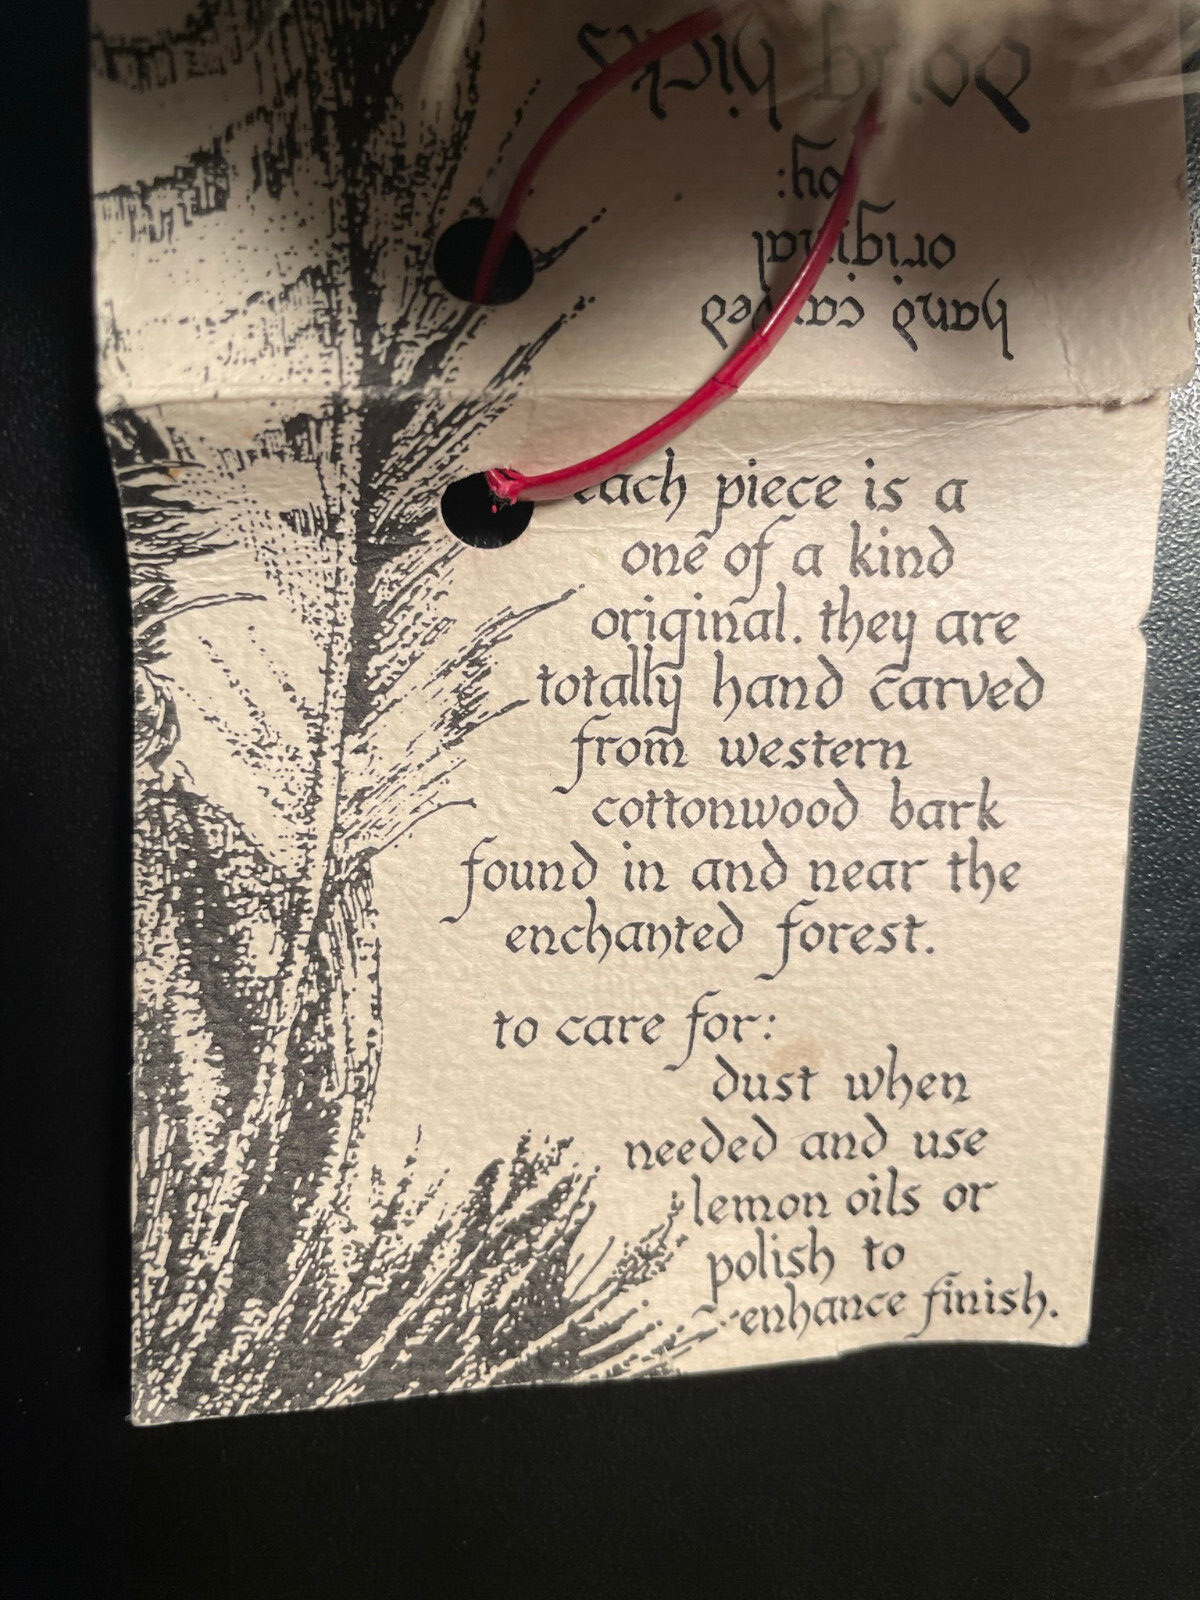 hand carved
original
by:
doug hicks
each piece is a
one of a kind
original. they are
totally hand carved
from western
cottonwood bark
found in and near the
enchanted forest.
to care for:
dust when
needed and use
lemon oils or
polish to
enhance finish.